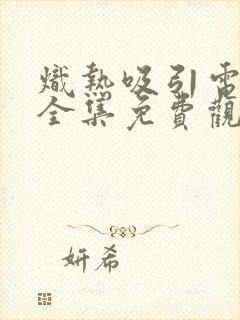 熾熱吸引電
全集免費觀
妍希